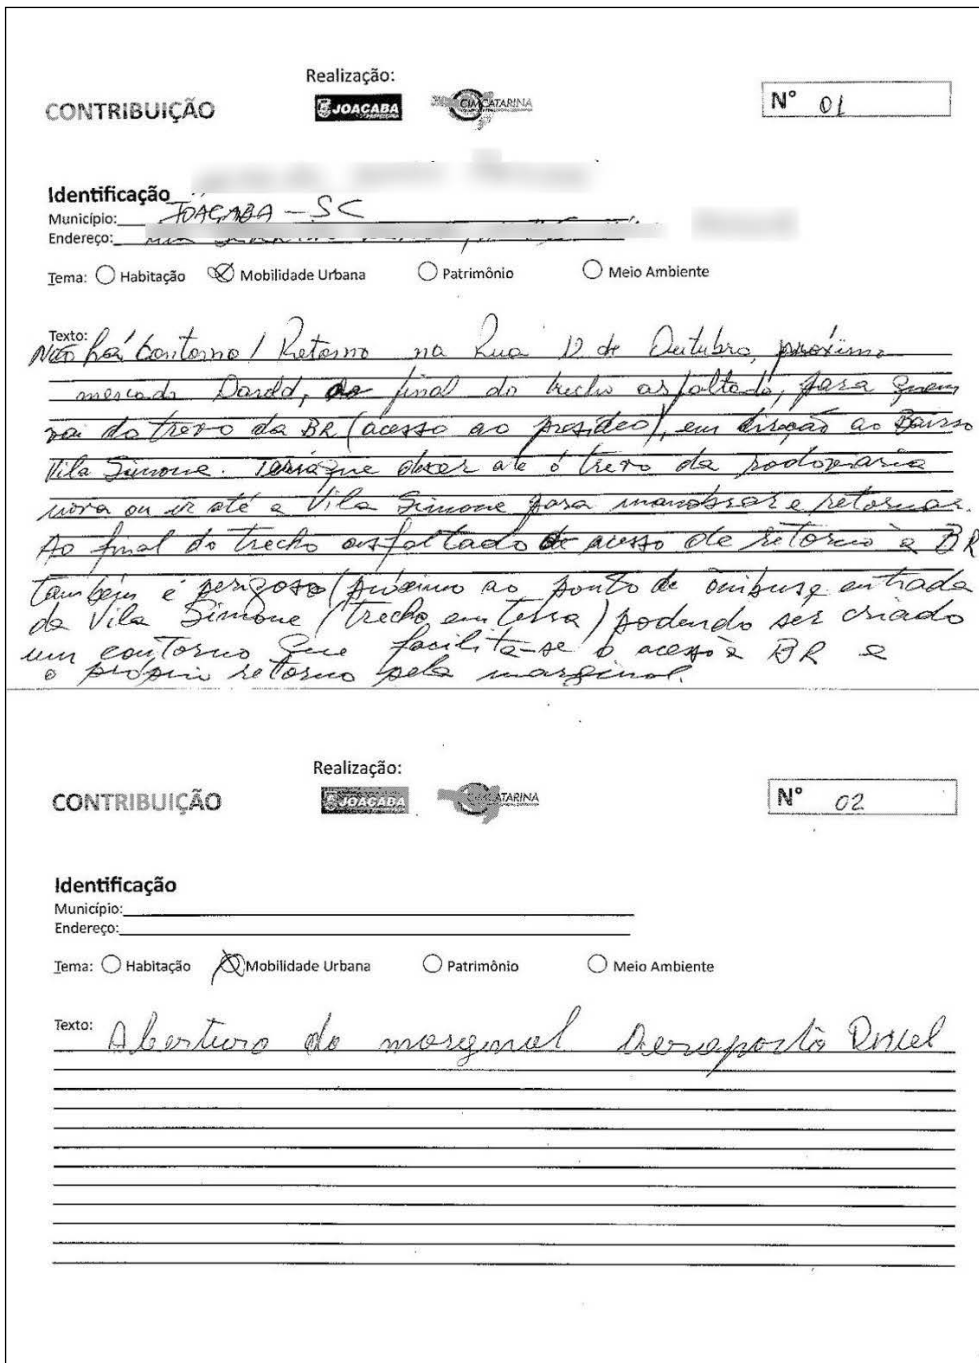 Realização:
CONTRIBUIÇÃO JOAÇABA CIMCATARINA Nº 01
Identificação
Município: JOAÇABA - SC
Endereço:
Tema: Habitação Mobilidade Urbana Patrimônio Meio Ambiente
Texto:
Não há contorno / Retorno na Rua 12 de Outubro, próximo
mercado Darold, ao final do trecho asfaltado, para quem
vai do trevo da BR (acesso ao presídeo), em direção ao Bairro
Vila Simone. Teria que descer até o trevo da rodoviaria
nova ou ir até a Vila Simone para manobrar e retornar.
Ao final do trecho asfaltado de acesso de retorno a BR
também é perigoso (próximo ao ponto de ônibus e entrada
da Vila Simone (trecho em terra) podendo ser criado
um contorno que facilita-se o acesso a BR e
o próprio retorno pela marginal.
Realização:
CONTRIBUIÇÃO JOAÇABA CIMCATARINA Nº 02
Identificação
Município:
Endereço:
Tema: Habitação Mobilidade Urbana Patrimônio Meio Ambiente
Texto: Abertura da marginal Aeroporto